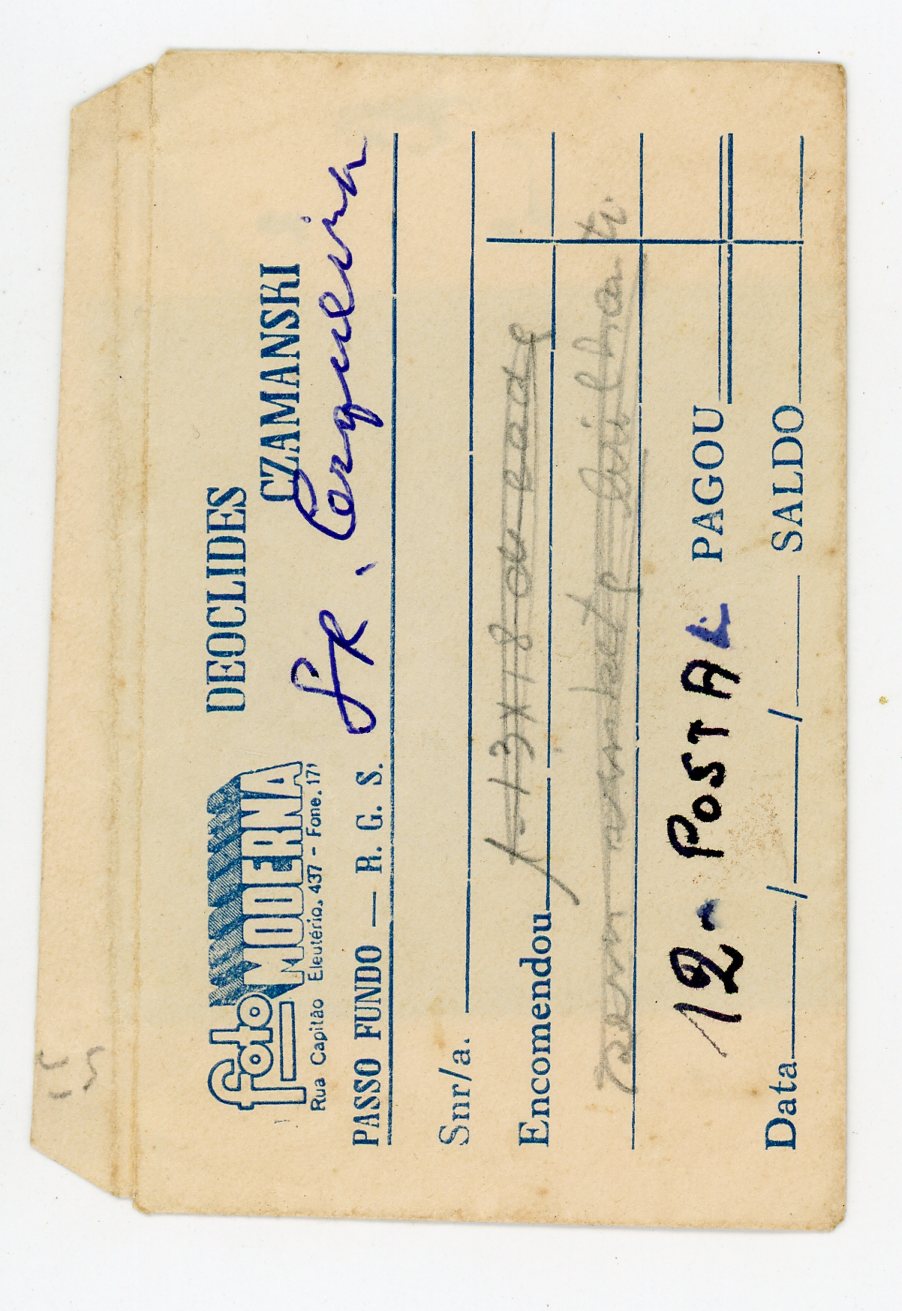 foto MODERNA
DEOCLIDES
CZAMANSKI
Rua Capitão Eleutério, 437 - Fone, 17
PASSO FUNDO — R. G. S.
SR. Cerqueira
Snr/a.
Encomendou 1 13x18
brilhante
12 - POSTAL
PAGOU
Data / / SALDO